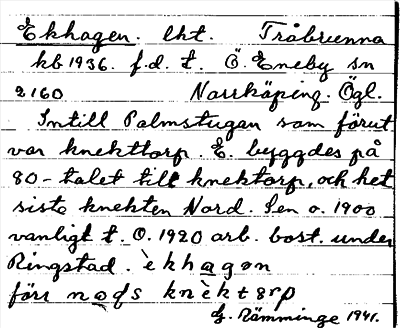 Ekhagen. lht. Tråbrunna
kb 1936. f.d. t. Ö. Eneby sn
2160 Norrköping. Ögl.
Intill Palmstugan som förut
var knekttorp E. byggdes på
80-talet till knektorp, och het
siste knekten Nord. Sen o. 1900
vanligt t. O. 1920 arb. bost. under
Ringstad. èkhagøn
förr nods knèktørp
G. Rämminge 1941.